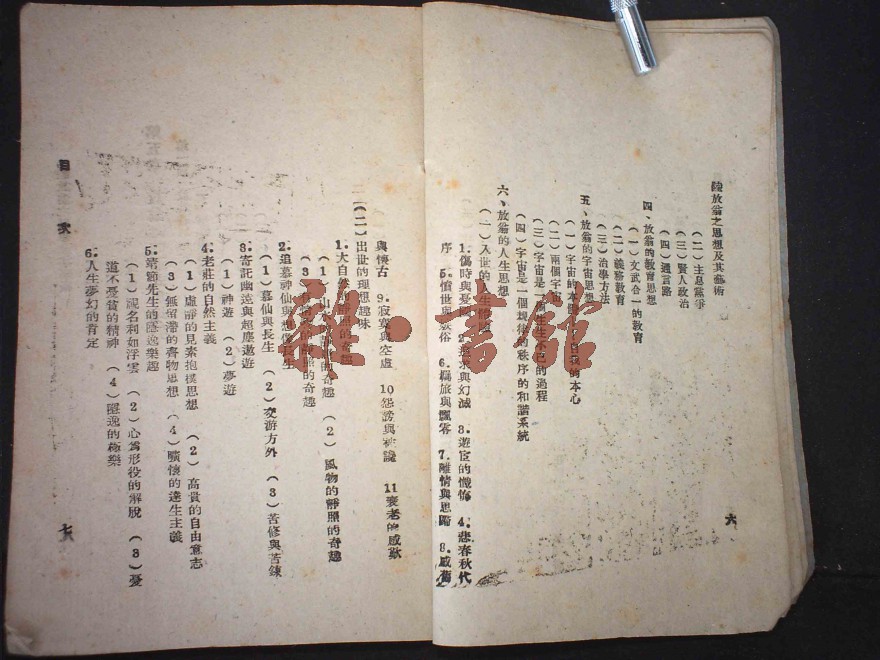 陸放翁之思想及其藝術
(二)主息黨爭
(三)賢人政治
(四)通言路
四、放翁的教育思想
(一)文武合一的教育
(二)義務教育
(三)治學方法
五、放翁的宇宙思想
(一)宇宙的本體 自我的本心
(二)兩個宇宙
(三)宇宙是 生生不息的過程
(四)宇宙是一個規律的秩序的和諧系統
六、放翁的人生思想
(一)入世的人生
1.傷時與憂國 2. 求與幻滅 3.遊宦的懺悔 4.悲春秋代
序 5.憤世與 俗 6.羈旅與飄零 7.離情與思歸 8.感舊
六
與懷古 9.寂寞與空虛 10怨謗與 讒 11衰老的感歎
(二)出世的理想趣味
1.大自然的靜照的奇趣
(1)山 的奇趣 (2)風物的靜照的奇趣
(3) 靜照的奇趣
2.追慕神仙與想像長生
(1)慕仙與長生 (2)交游方外 (3)苦修與苦鍊
3.寄託幽遠與超塵遨遊
(1)神遊 (2)夢遊
4.老莊的自然主義
(1)虛靜的見素抱撲思想 (2)高貴的自由意志
(3)無留滯的齊物思想 (4)曠懷的達生主義
5.靖節先生的隱逸樂趣
(1)視名利如浮雲 (2)心為形役的解脫 (3)憂
道不憂貧的精神 (4)隱逸的極樂
6.人生夢幻的肯定
目次
七
雅·書館